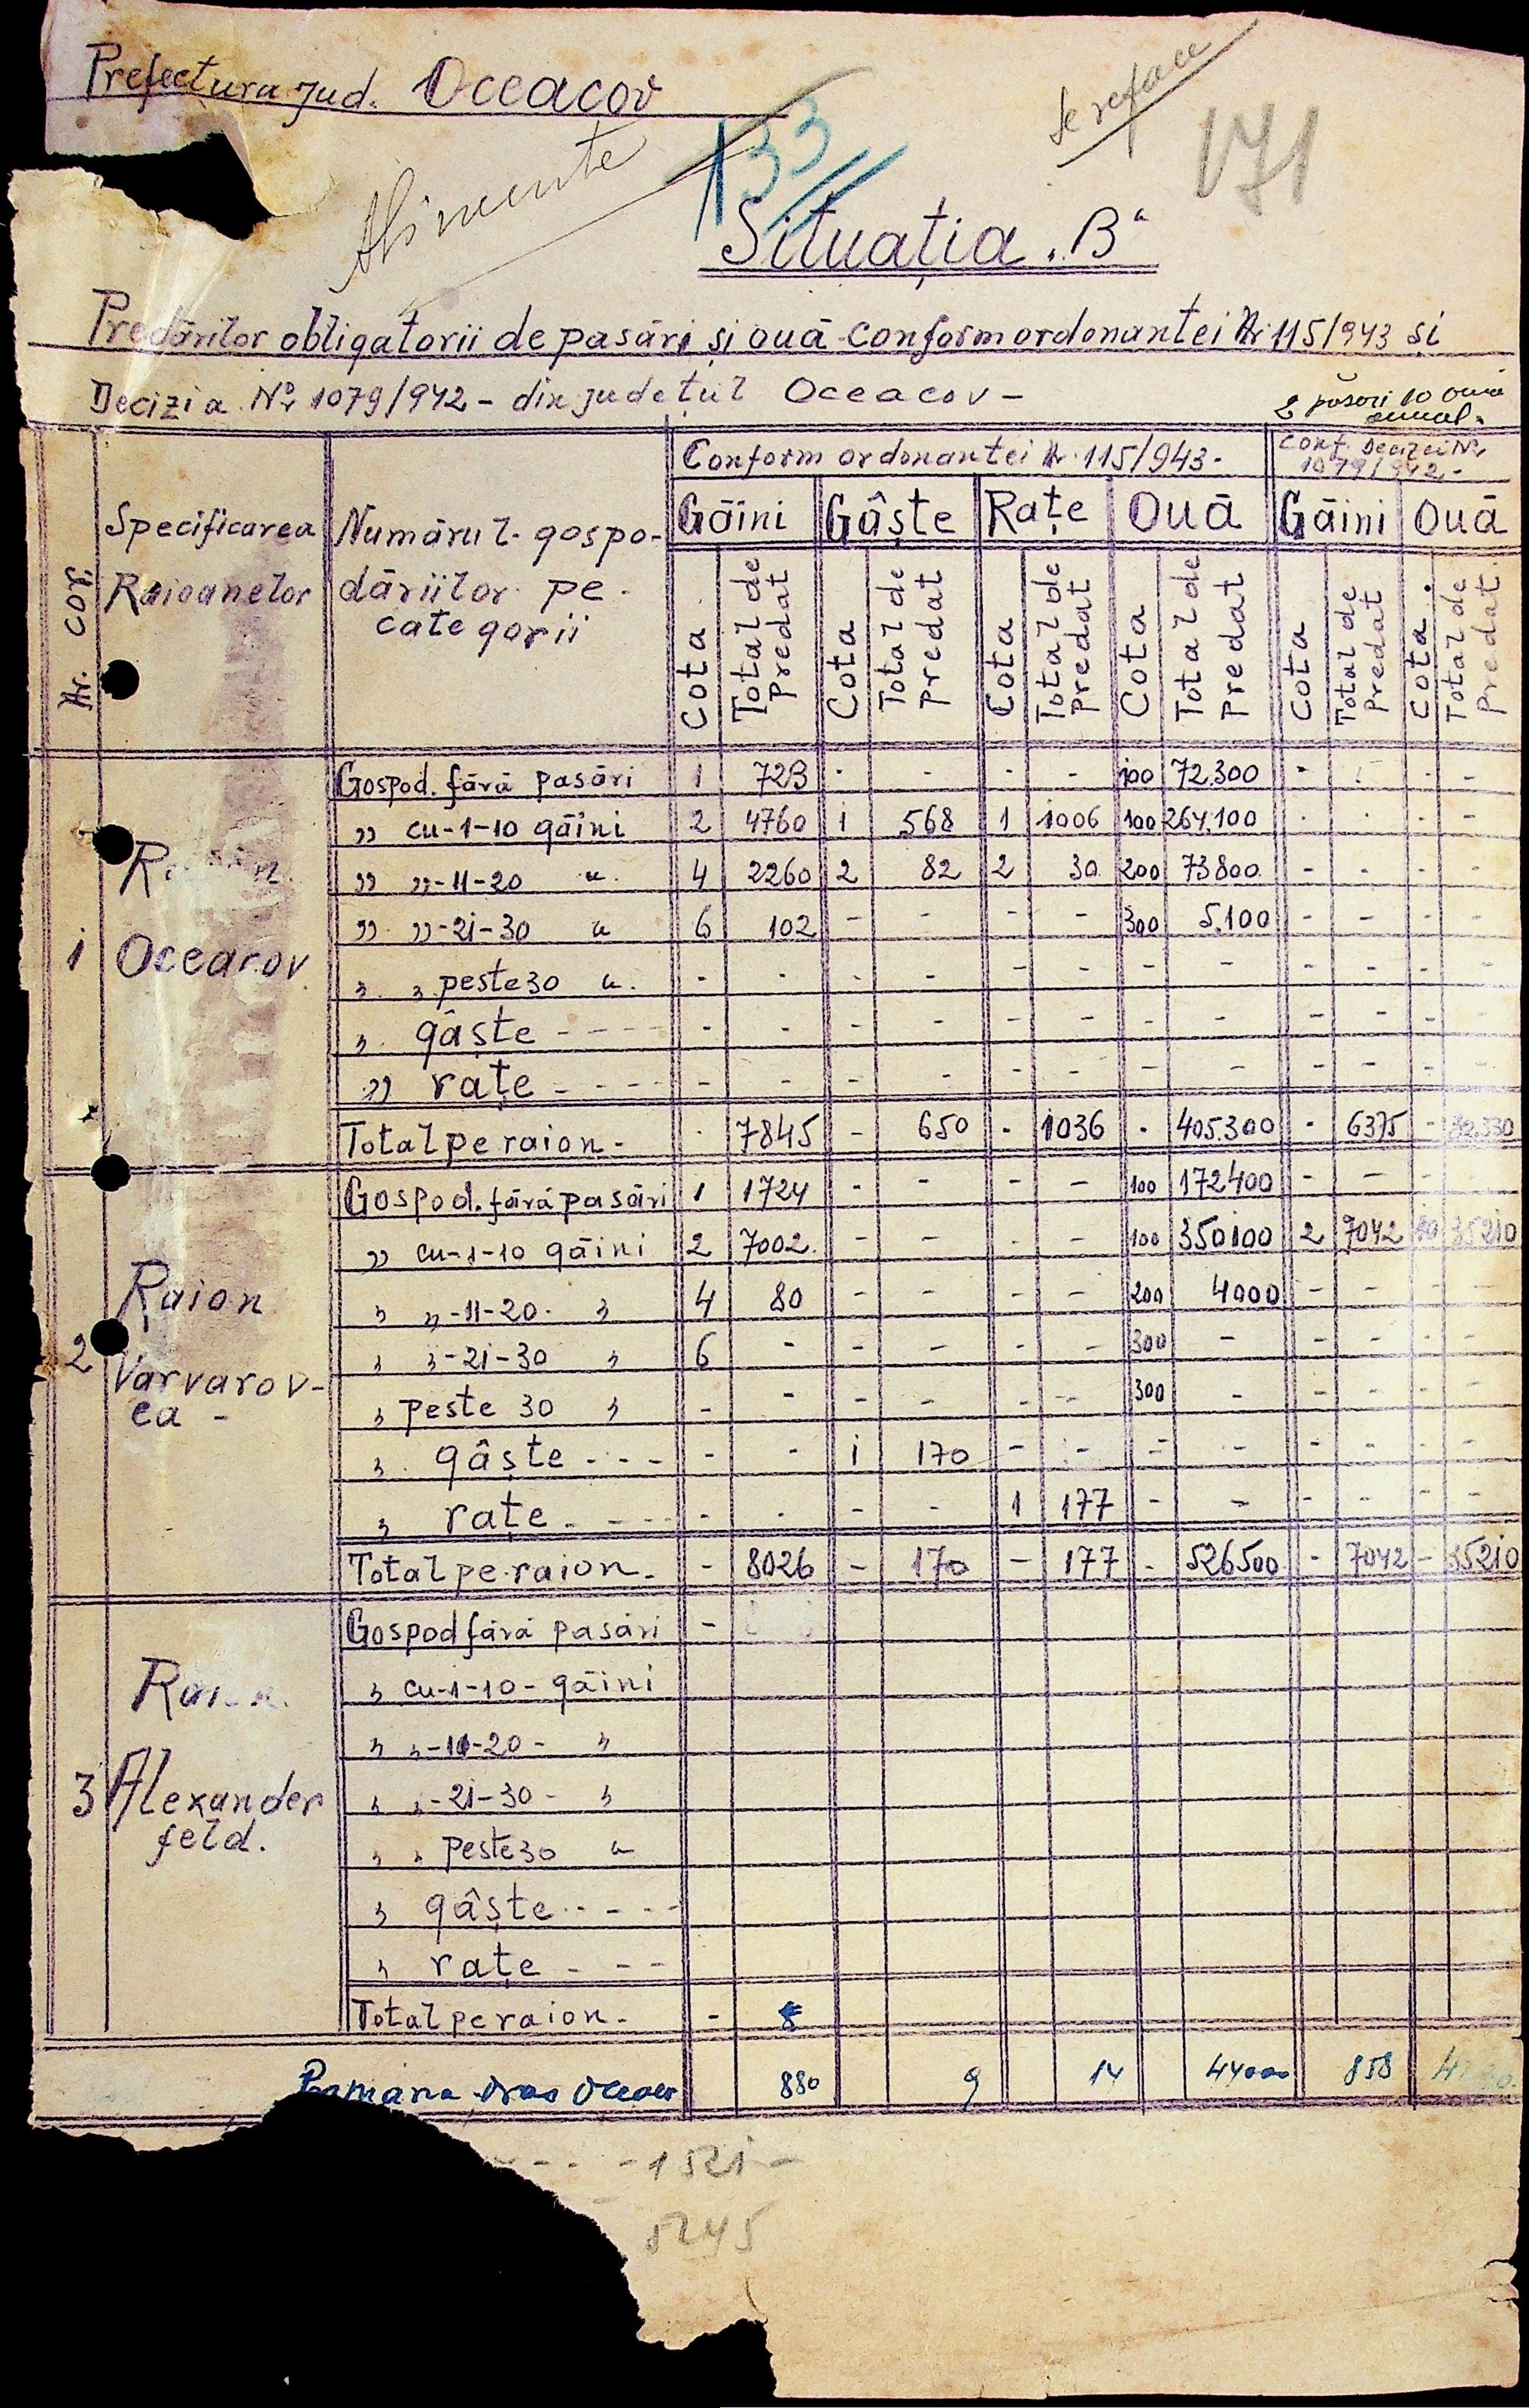 Prefectura jud. Oceacov
Se reface
133
171
Alimente
Situația „B“
Predărilor obligatorii de pasări și ouă conform ordonantei Nr 115/943 și
Decizia Nr 1079/942 - din județul Oceacov -
2 păsări 10 ouă
anual.
Nr. cor.
Specificarea Raioanelor
Numărul gospo-
dăriilor pe
categorii
Conform ordonantei Nr. 115/943 -
Conf. Deciziei Nr.
1079/942 -
Găini Gâște Rațe Ouă Găini Ouă
Cota Total de predat Cota Total de predat Cota Total de predat Cota Total de predat Cota Total de predat Cota Total de predat
1 Oceacov
Gospod. fără pasări 1 723 - - - - 100 72.300 - - - -
„ cu-1-10 găini 2 4760 1 568 1 1006 100 264.100 - - - -
„ „-11-20 „ 4 2260 2 82 2 30 200 73800 - - - -
„ „-21-30 „ 6 102 - - - - 300 5.100 - - - -
„ „ peste 30 „ - - - - - - - - - - - -
„ gâște - - - - - - - - - - - - - - - -
„ rațe - - - - - - - - - - - - - - - -
Total pe raion - - 7845 - 650 - 1036 - 405.300 - 6375 -
2 Raion Varvarov-
ca -
Gospod. fără pasări 1 1724 - - - - 100 172400 - - - -
„ cu-1-10 găini 2 7002 - - - - 100 350100 2 7042 10 35210
„ „-11-20 „ 4 80 - - - - 200 4000 - - - -
„ „-21-30 „ 6 - - - - - 300 - - - - -
„ peste 30 „ - - - - - - 300 - - - - -
„ gâște - - - - - 1 170 - - - - - - - -
„ rațe - - - - - - - - 1 177 - - - - - -
Total pe raion - - 8026 - 170 - 177 - 526500 - 7042 - 35210
3 Alexander
feld.
Gospod fără pasări -
„ cu-1-10- găini
„ „-11-20 - „
„ „-21-30 - „
„ „ peste 30 „
„ gâște - - - -
„ rațe - - -
Total pe raion - -
880 9 14 44000 858
- 1521 -
5245